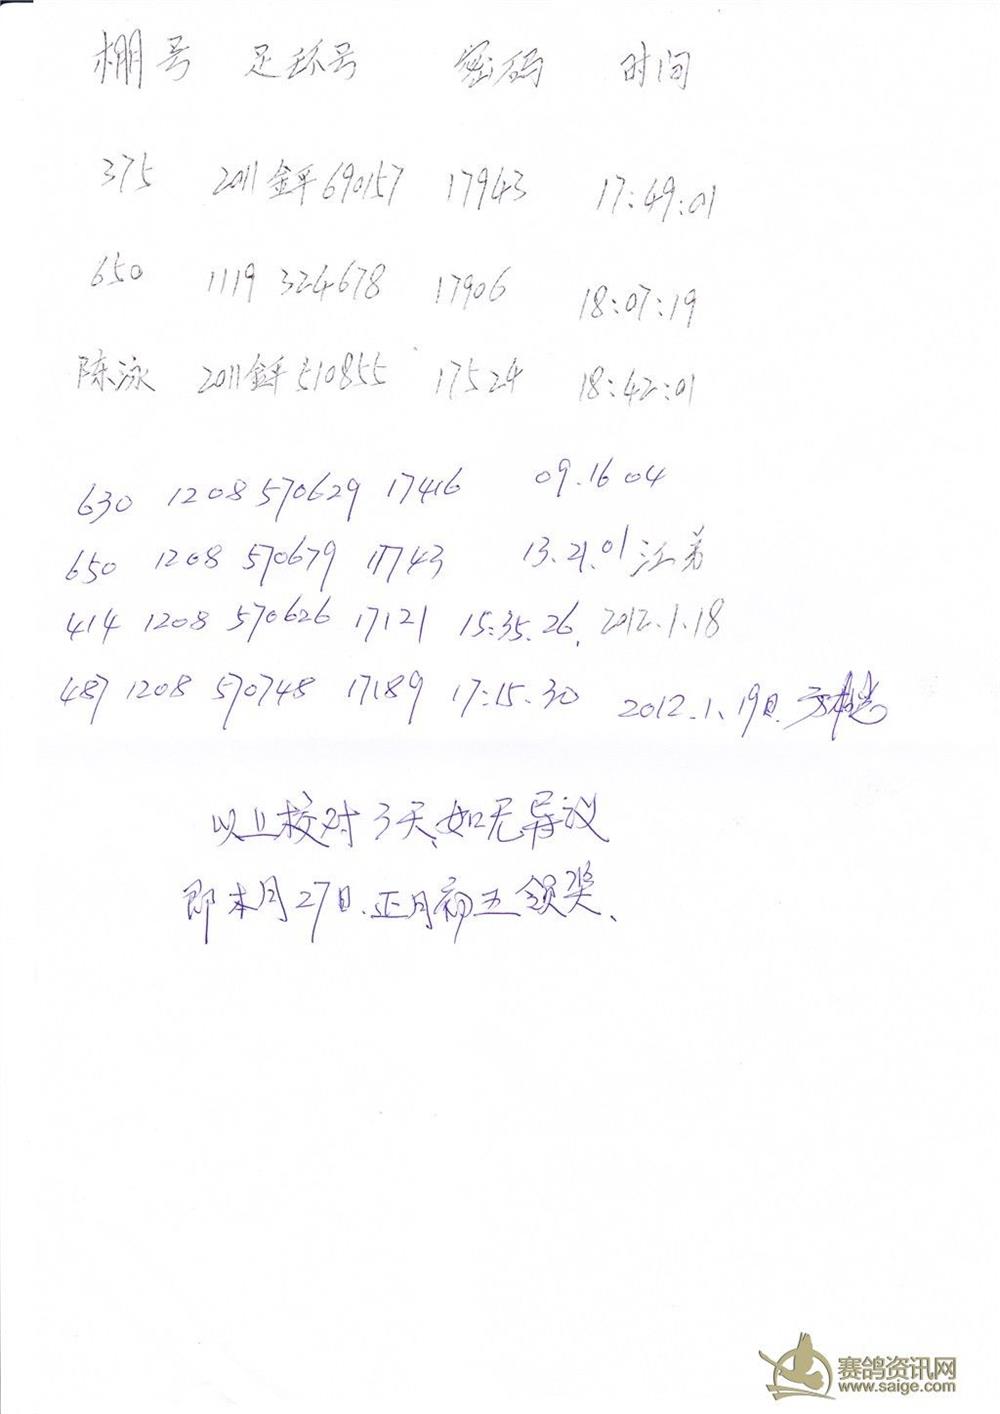 棚号 足环号 密码 时间
375 2011金平690157 17943 17:49:01
650 1119 324678 17906 18:07:19
陈泳 2011金平510855 17524 18:42:01
630 1208 570629 17416 09.16 04
650 1208 570679 17743 13.21.01 江弟
414 1208 570626 17121 15:35.26. 2012.1.18
487 1208 570748 17189 17:15.30 2012.1.19日.
以上校对3天、如无异议
即本月27日.正月初五领奖、
赛鸽资讯网
www.saige.com